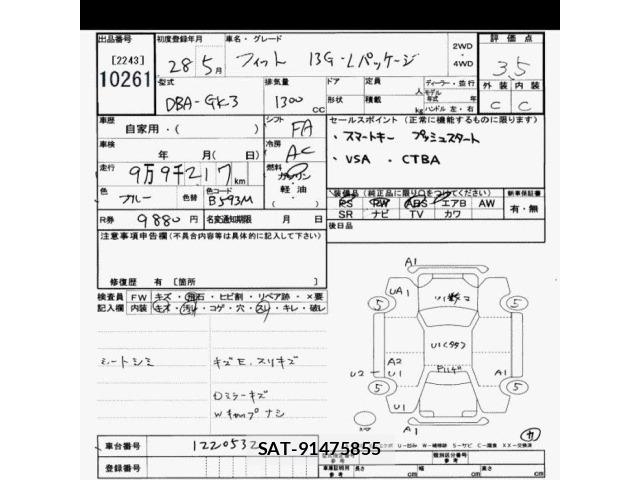 出品番号 初度登録年月 車名・グレード 評価点
[2243] 28年5月 フィット 13G・Lパッケージ 2WD・4WD 3.5
10261 型式 排気量 ドア 定員 人 ディーラー・並行 外装 内装
DBA-GK3 1300 CC 形状 積載 kg モデル年式 年 ハンドル 左・右 C C
車歴 自家用・( ) シフト FA セールスポイント (正常に機能するものに限ります)
車検 年 月(日) 冷房 AC ・スマートキー プッシュスタート
走行 9万9千217km 燃料 ガソリン ・VSA ・CTBA
軽油
色 ブルー 色替 色コード B593M 装備品(純正品に限り○をつけてください) 新車保証書
R券 9880円 名変通知期限 月 日 PS PW ABS エアB AW 有・無
SR ナビ TV カワ
注意事項申告欄(不具合内容等は具体的に記入して下さい) 後日品
修復歴 有 [箇所 ]
検査員 FW キズ・飛石・ヒビ割・リペア跡・×要
記入欄 内装 キオ・汚レ・コゲ・穴・スレ・キレ・破レ
シートシミ キズE、スリキズ
Dミラーキズ
Wキャップナシ
A1
UA1
5
5
U1
A2
U2 U1
A1
5
5
U1
A1
車台番号 1220532
登録番号
SAT-91475855